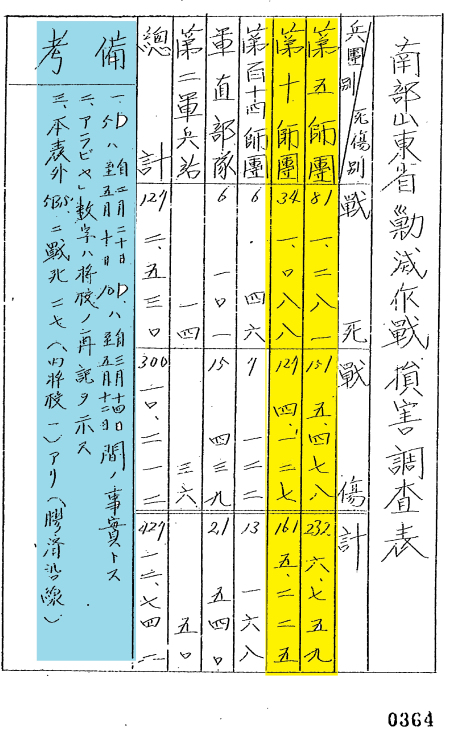 南部山東省剿滅作戰損害調査表
兵團別 死傷別 戰死 戰傷 計
第五師團 81 一、二八一 151 五、四七八 232 六、七五九
第十師團 34 一、〇八八 127 四、一三七 161 五、二二五
第百十四師團 6 四六 7 一二二 13 一六八
軍直部隊 6 一〇一 15 四三九 21 五四〇
第二軍兵站 一四 三六 五〇
總計 127 二、五三〇 300 一〇、二一二 427 一二、七四二
備考
一、5Dハ自二月二十日至五月十日 10Dハ自三月十四日至五月十二日間ノ事實トス
二、アラビヤ數字ハ將校ノ再記ヲ示ス
三、本表外5BSニ戰死二七(內將校一)アリ(膠濟沿線)
0364